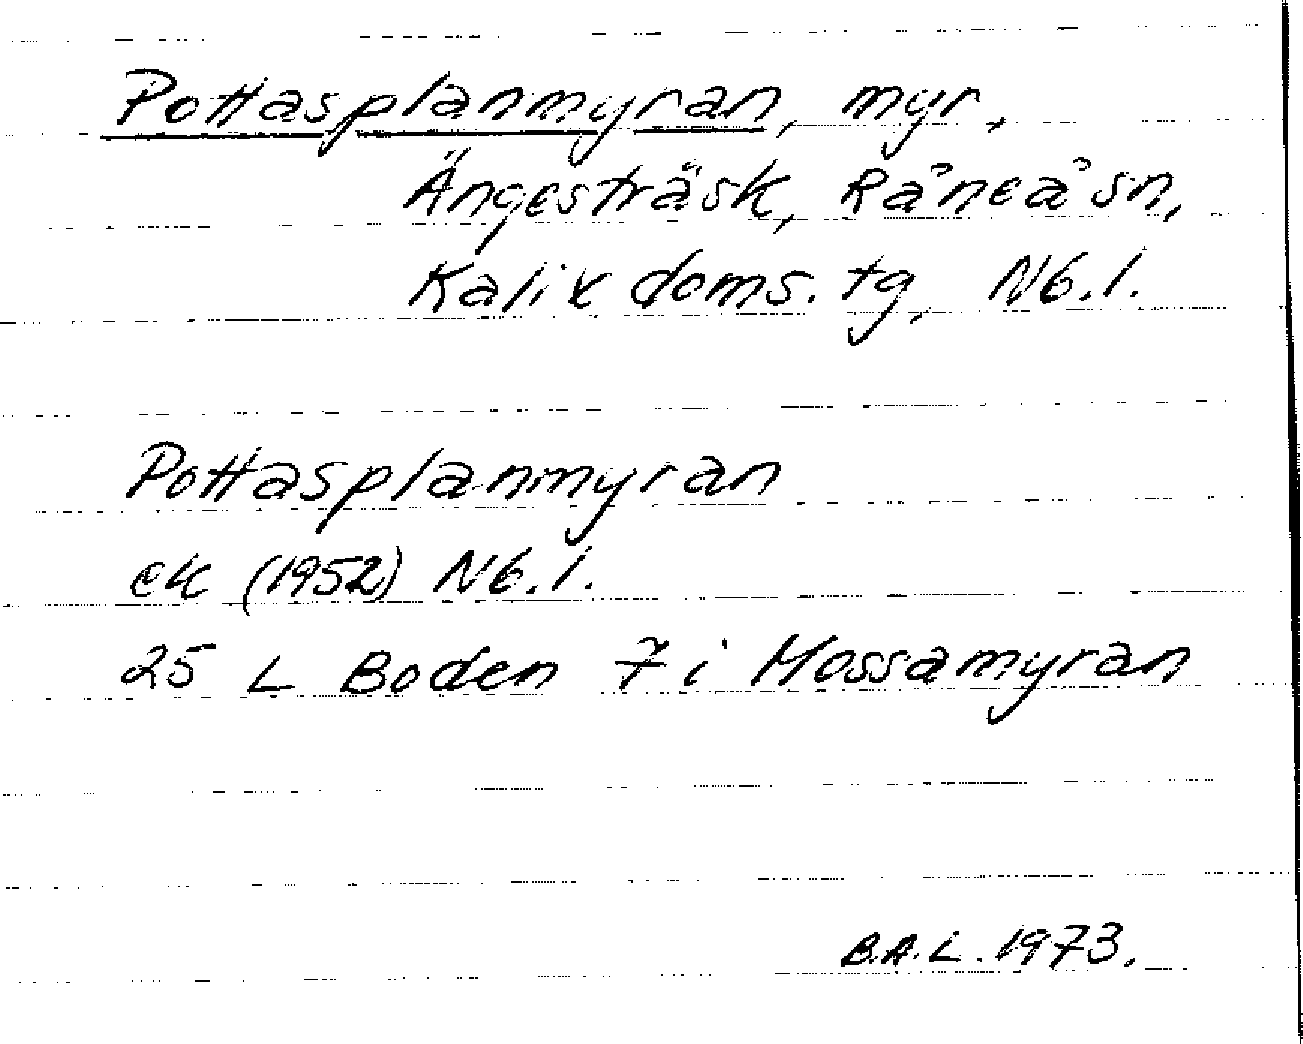 Pottasplanmyran, myr,
Ängesträsk, Råneå sn,
Kalix doms. tg, Nb.l.
Pottasplanmyran
ek (1952) Nb.l.
25 L Boden 7 i Mossamyran
B.A.L. 1973.